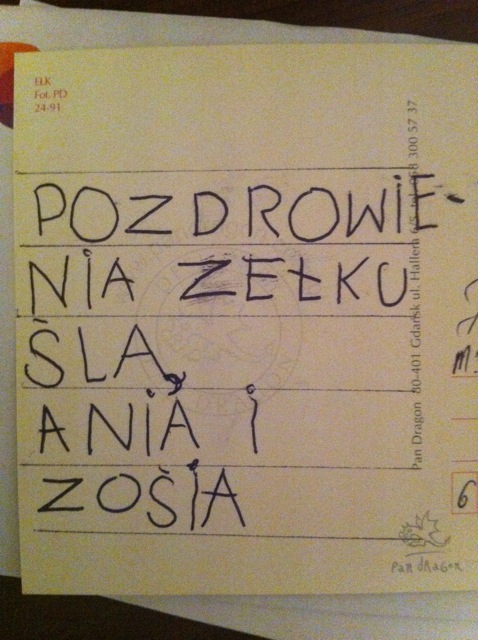 EŁK
Fot. PD
24-91
POZDROWIE-
NIA ZEŁKU
ŚLĄ
ANIA i
ZOŚIA
Pan Dragon 80-401 Gdańsk ul. Hallera 6/5 tel. 058 300 57 37
6
pan dragon